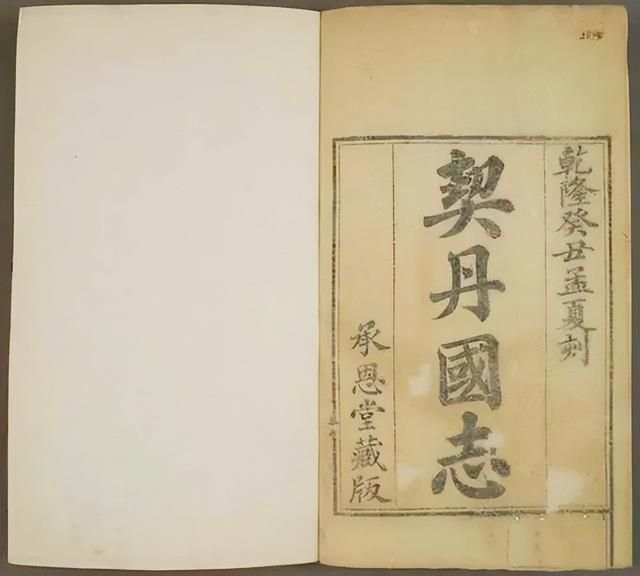 乾隆癸丑孟夏刻
契丹國志
承恩堂藏版